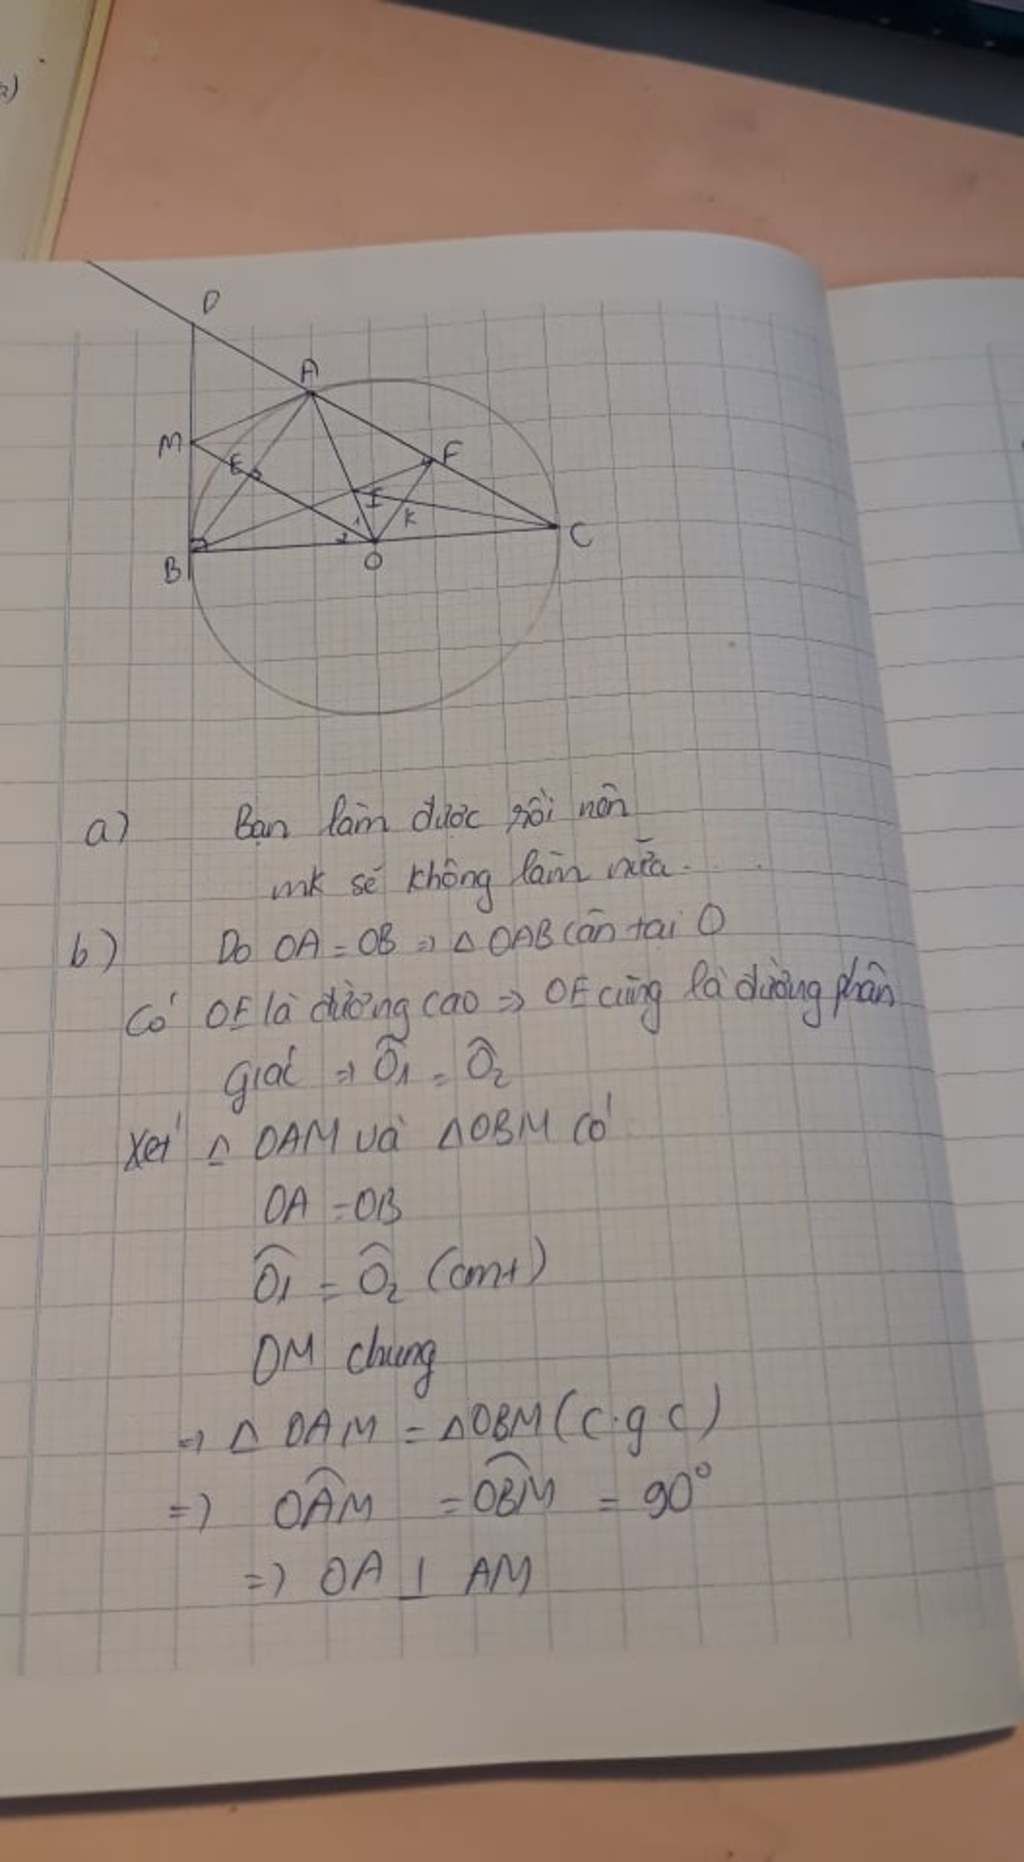 2)
D
A
M
E
F
I
1
K
2
C
B
O
a) Bạn làm được rồi nên
mk sẽ không làm nữa.
b) Do OA = OB => △ OAB cân tại O
Có OE là đường cao => OE cũng là đường phân
giác => Ô1 = Ô2
Xét △ OAM và △OBM có
OA = OB
Ô1 = Ô2 (cmt)
OM chung
=> △ OAM = △OBM (c.g c)
=> OÂM = OB̂M = 90°
=> OA ⊥ AM